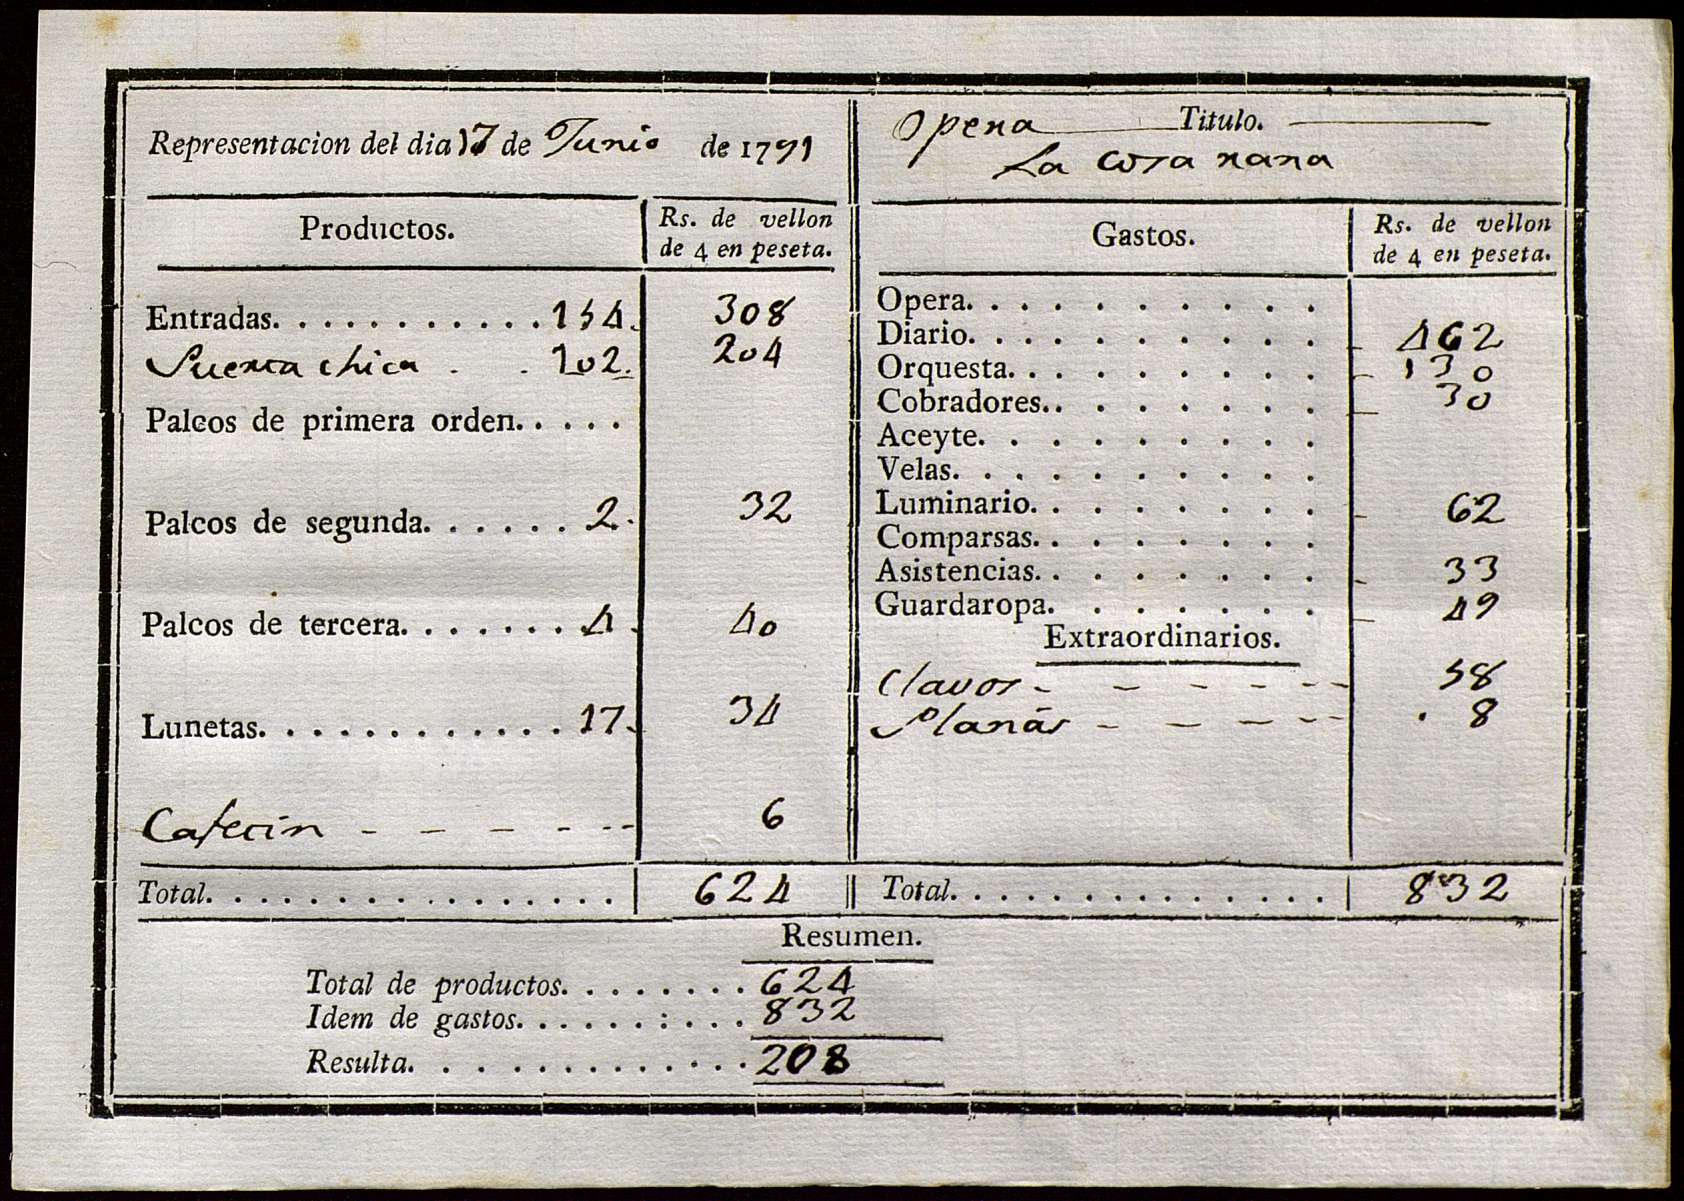 Representacion del dia 17 de Junio de 1791
Productos.
Rs. de vellon
de 4 en peseta.
Entradas. . . . . . . . . . . 154. 308
Puerta chica . . 102. 204
Palcos de primera orden. . . . .
Palcos de segunda. . . . . . 2. 32
Palcos de tercera. . . . . . . 4. 40
Lunetas. . . . . . . . . . . . 17. 34
Cafecin - - - - - - 6
Total. . . . . . . . . . . . . . . . 624
Opera Titulo.
La cosa rara
Gastos.
Rs. de vellon
de 4 en peseta.
Opera. . . . . . . . . .
Diario. . . . . . . . . . 462
Orquesta. . . . . . . . . 130
Cobradores. . . . . . . . 30
Aceyte. . . . . . . . . .
Velas. . . . . . . . . .
Luminario. . . . . . . . 62
Comparsas. . . . . . . .
Asistencias. . . . . . . . 33
Guardaropa. . . . . . . 49
Extraordinarios.
Clavos - - - - - - 58
- - - - - - 8
Total. . . . . . . . . . . . . . . 832
Resumen.
Total de productos. . . . . . . . 624
Idem de gastos. . . . . . : . . . 832
Resulta. . . . . . . . . . . . 208